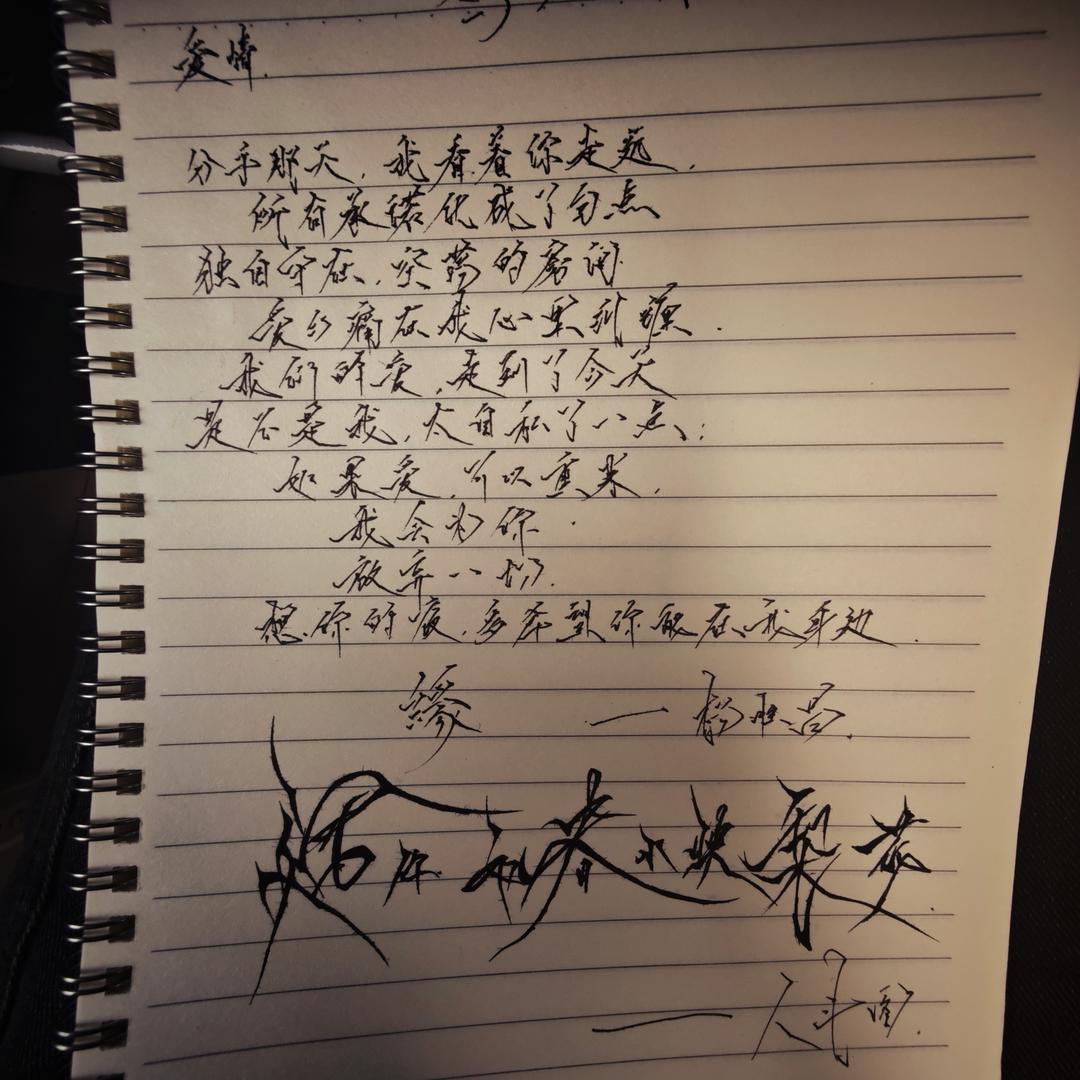 爱情.
分手那天,我看着你走远,
所有承诺化成了句点
独自守在,空荡的房间
爱与痛在我心里纠缠.
我们的爱,走到了今天
是不是我,太自私了一点;
如果爱,可以重来,
我会为你.
放弃一切.
想你的夜,多希望你能在我身边.
缘
初春 映梨花.